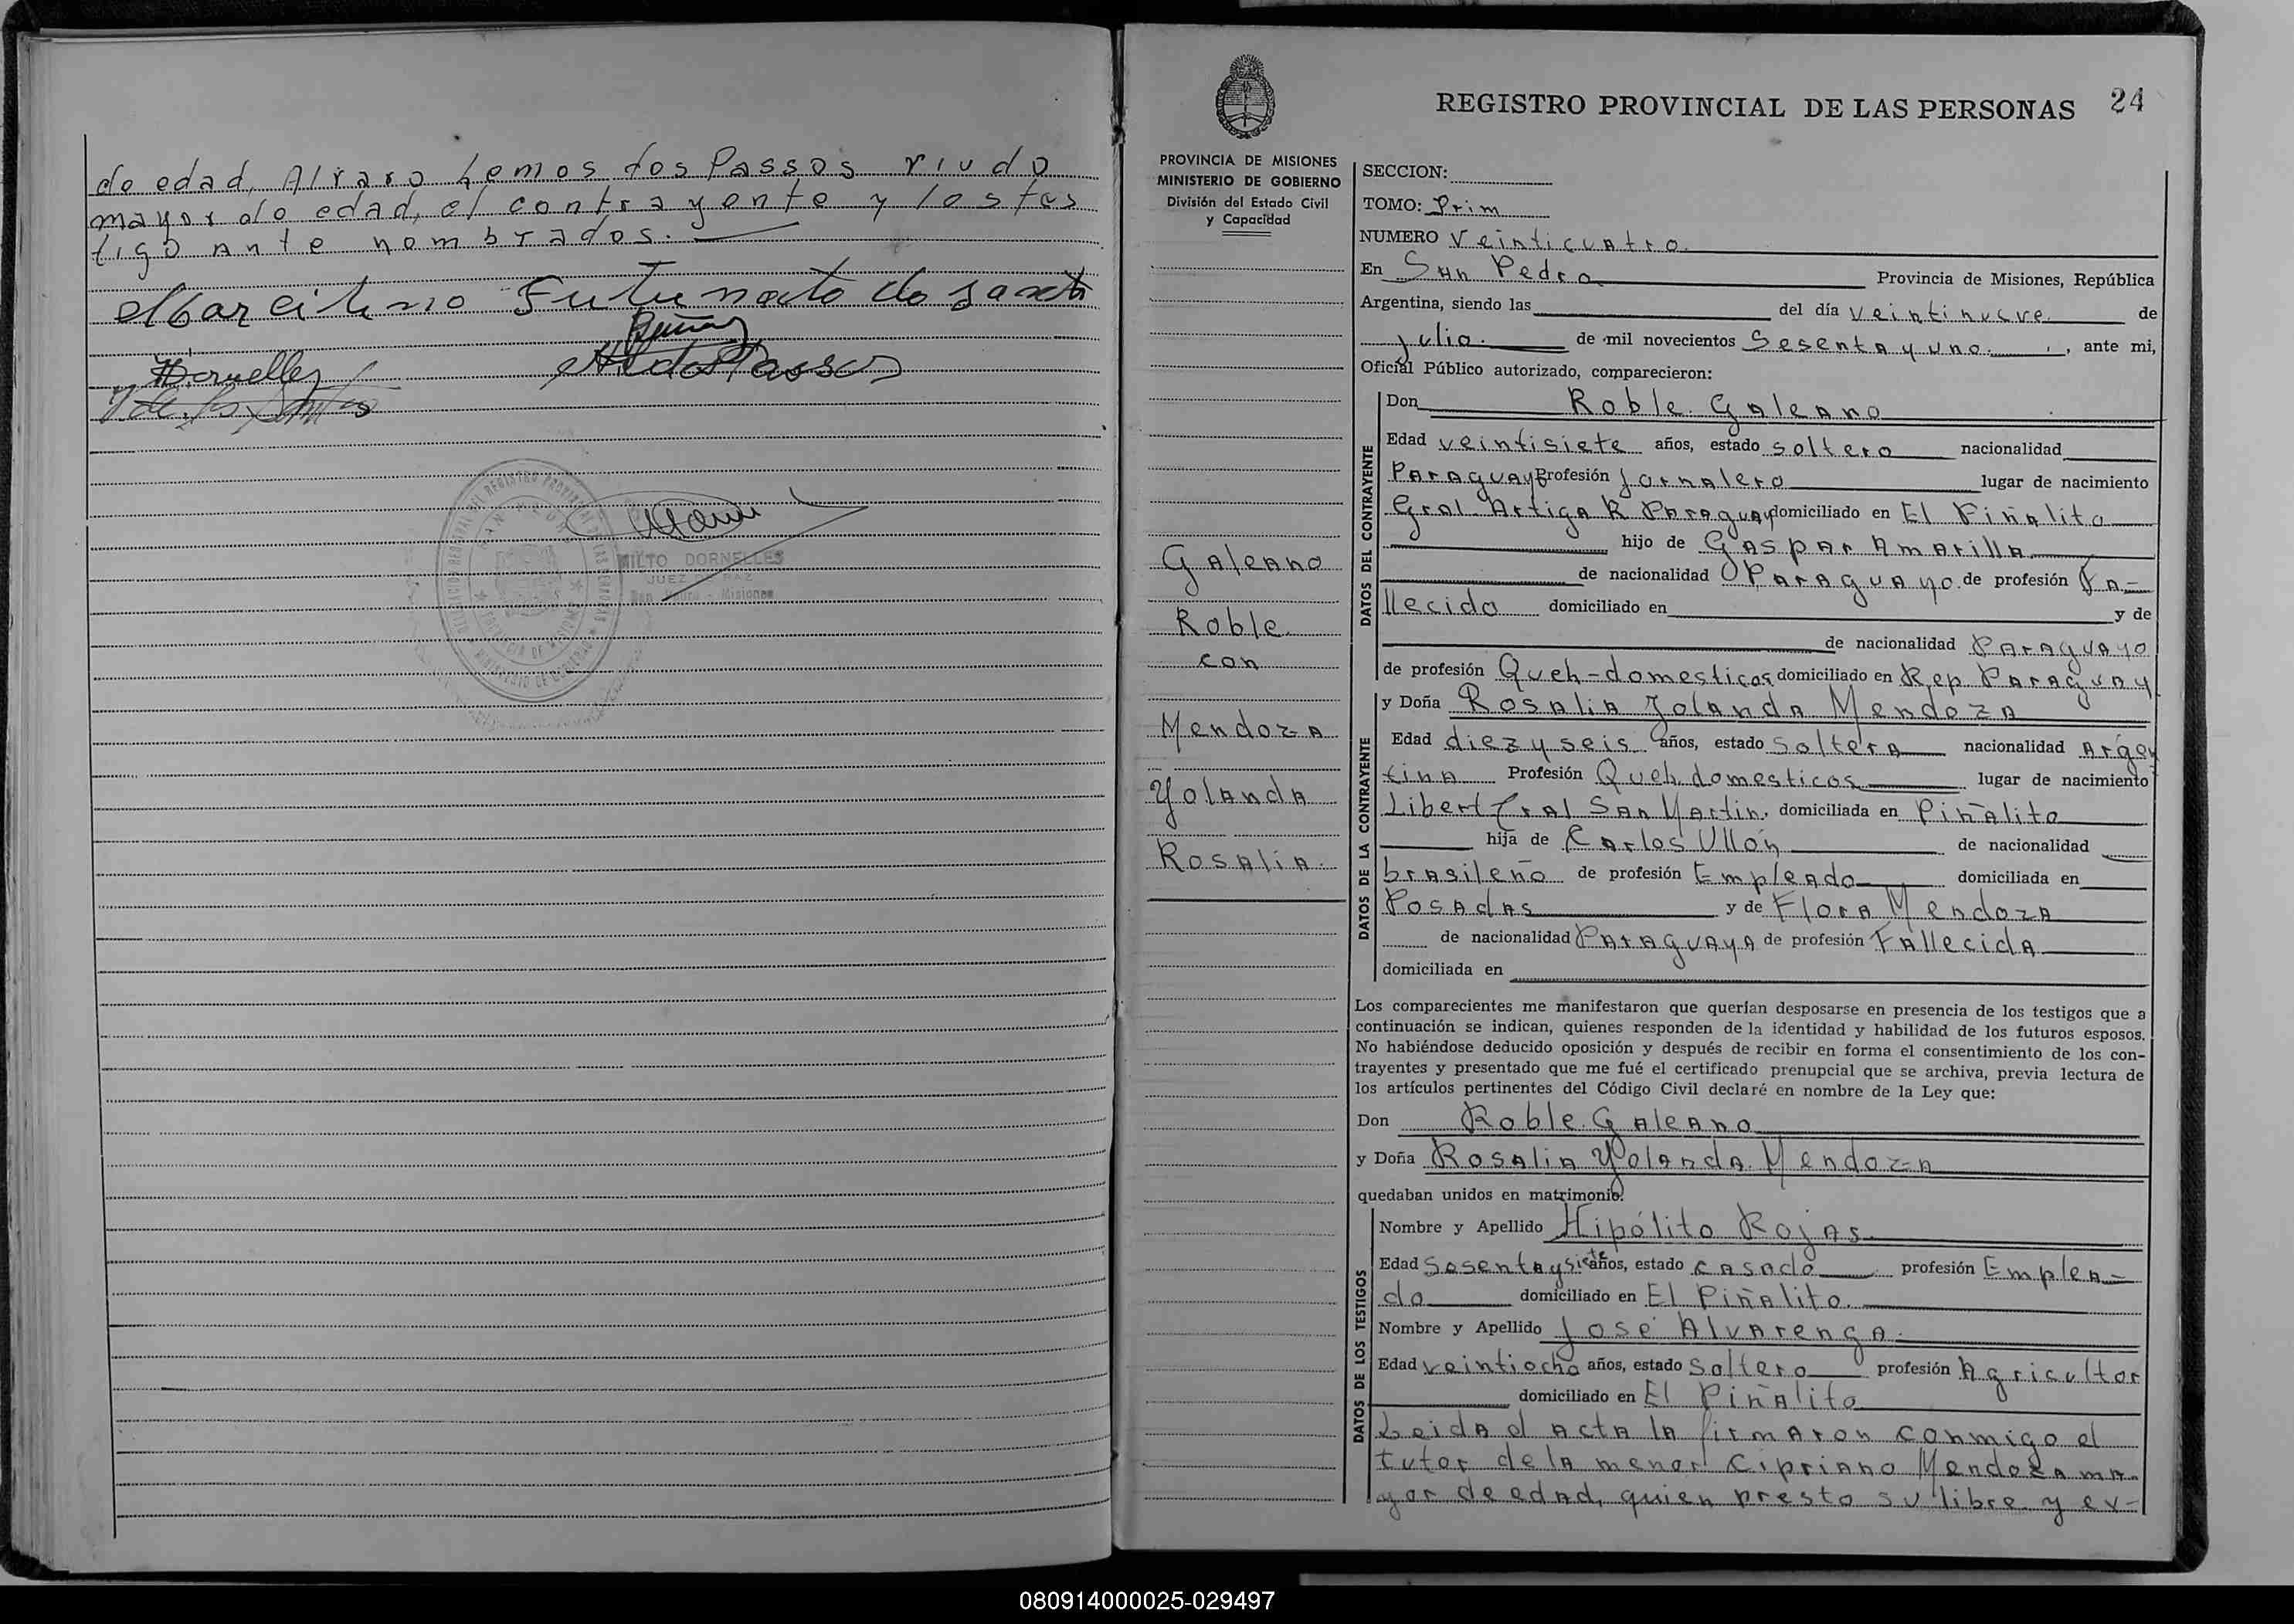 de edad, Alvaro Lemos dos Passos viudo
mayor de edad, el contrayente y los tes
tigo ante nombrados.
Marcilino Futunato do
HDornelles
AldosPassos
DELEGACION REGIONAL DEL REGISTRO PROVINCIAL DE LAS PERSONAS
SAN PEDRO
PROVINCIA DE MISIONES
MINISTERIO DE GOBIERNO
MILTO DORNELLES
JUEZ DE PAZ
San Pedro - Misiones
24
REGISTRO PROVINCIAL DE LAS PERSONAS
PROVINCIA DE MISIONES
MINISTERIO DE GOBIERNO
División del Estado Civil
y Capacidad
Galeano
Roble
con
Mendoza
Yolanda
Rosalia
SECCION:
TOMO: Prim
NUMERO Veinticuatro
En San Pedro Provincia de Misiones, República
Argentina, siendo las del día veintinueve de
julio de mil novecientos Sesenta y uno, ante mi,
Oficial Público autorizado, comparecieron:
DATOS DEL CONTRAYENTE
Don Roble Galeano
Edad veintisiete años, estado soltero nacionalidad
Paraguayo Profesión Jornalero lugar de nacimiento
Gral Artiga R Paraguay domiciliado en El Piñalito
hijo de Gaspar Amarilla
de nacionalidad Paraguayo de profesión Fa-
llecido domiciliado en y de
de nacionalidad Paraguayo
de profesión Queh-domesticos domiciliado en Rep Paraguay
DATOS DE LA CONTRAYENTE
y Doña Rosalia Yolanda Mendoza
Edad diez y seis años, estado Soltera nacionalidad Argen
tina Profesión Queh.domesticos lugar de nacimiento
Libert Gral San Martin, domiciliada en Piñalito
hija de Carlos Ullón de nacionalidad
brasileño de profesión Empleado domiciliada en
Posadas y de Flora Mendoza
de nacionalidad Paraguaya de profesión Fallecida
domiciliada en
Los comparecientes me manifestaron que querían desposarse en presencia de los testigos que a
continuación se indican, quienes responden de la identidad y habilidad de los futuros esposos.
No habiéndose deducido oposición y después de recibir en forma el consentimiento de los con-
trayentes y presentado que me fué el certificado prenupcial que se archiva, previa lectura de
los artículos pertinentes del Código Civil declaré en nombre de la Ley que:
Don Roble Galeano
y Doña Rosalia Yolanda Mendoza
quedaban unidos en matrimonio.
DATOS DE LOS TESTIGOS
Nombre y Apellido Hipólito Rojas
Edad Sesenta y siete años, estado casado profesión Emplea-
do domiciliado en El Piñalito.
Nombre y Apellido José Alvarenga
Edad veintiocho años, estado Soltero profesión Agricultor
domiciliado en El Piñalito
Leida el acta la firmaron conmigo el
tutor de la menor Cipriano Mendoza ma-
yor de edad, quien presto su libre y ex-
080914000025-029497